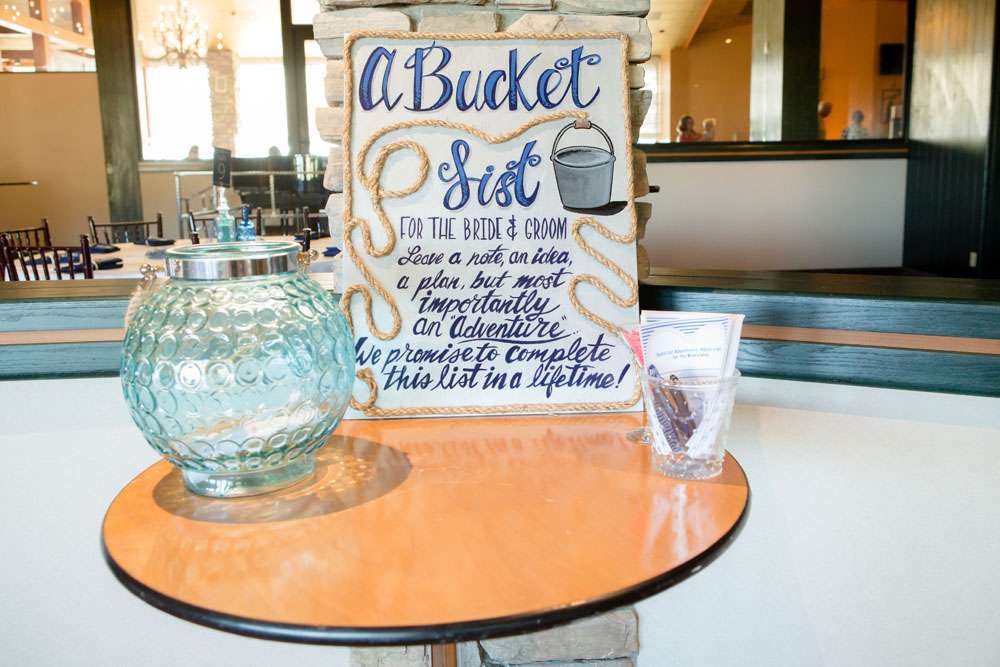 A Bucket
List
FOR THE BRIDE & GROOM
Leave a note, an idea,
a plan, but most
importantly
an "Adventure"..
We promise to complete
this list in a lifetime!